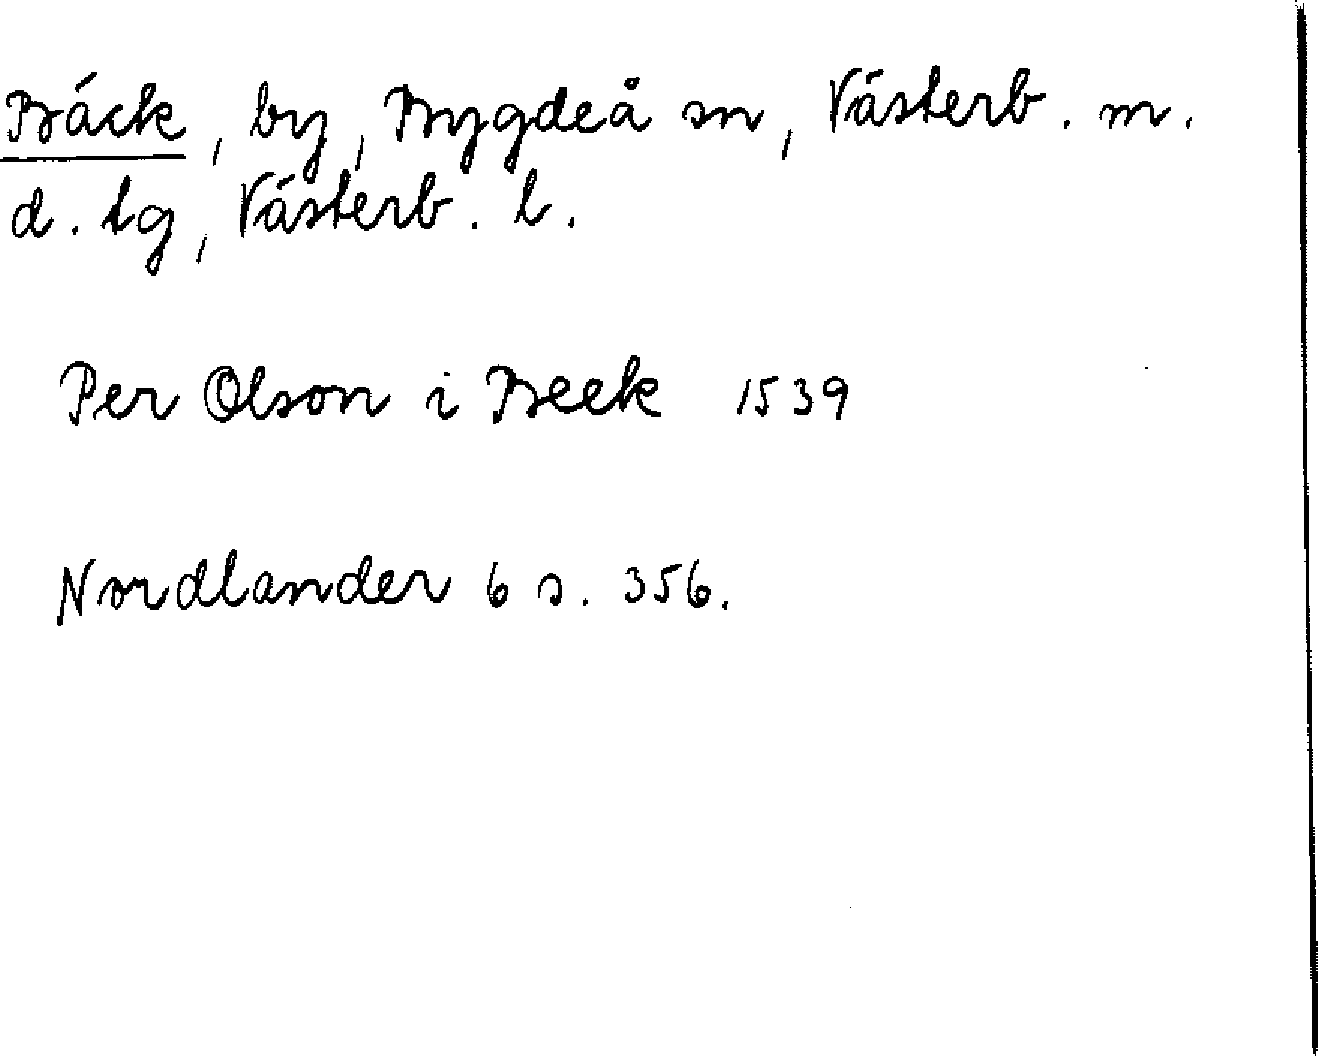 Bäck, by, Bygdeå sn, Västerb. m.
d. tg, Västerb. l.
Per Olson i Beek 1539
Nordlander 6 s. 356.